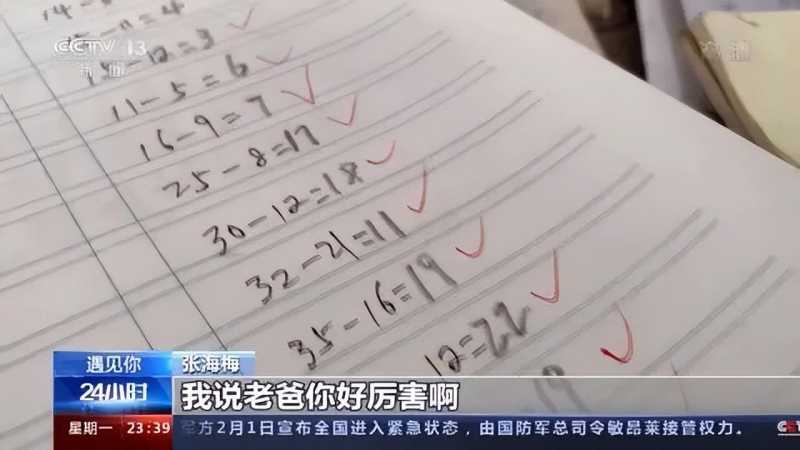 CCTV 13
新闻
高清
15-12=3
11-5=6
16-9=7
25-8=17
30-12=18
32-21=11
35-16=19
12=22
19
遇见你
张海梅
24小时
我说老爸你好厉害啊
星期一 23:39
军方2月1日宣布全国进入紧急状态，由国防军总司令敏昂莱接管权力。